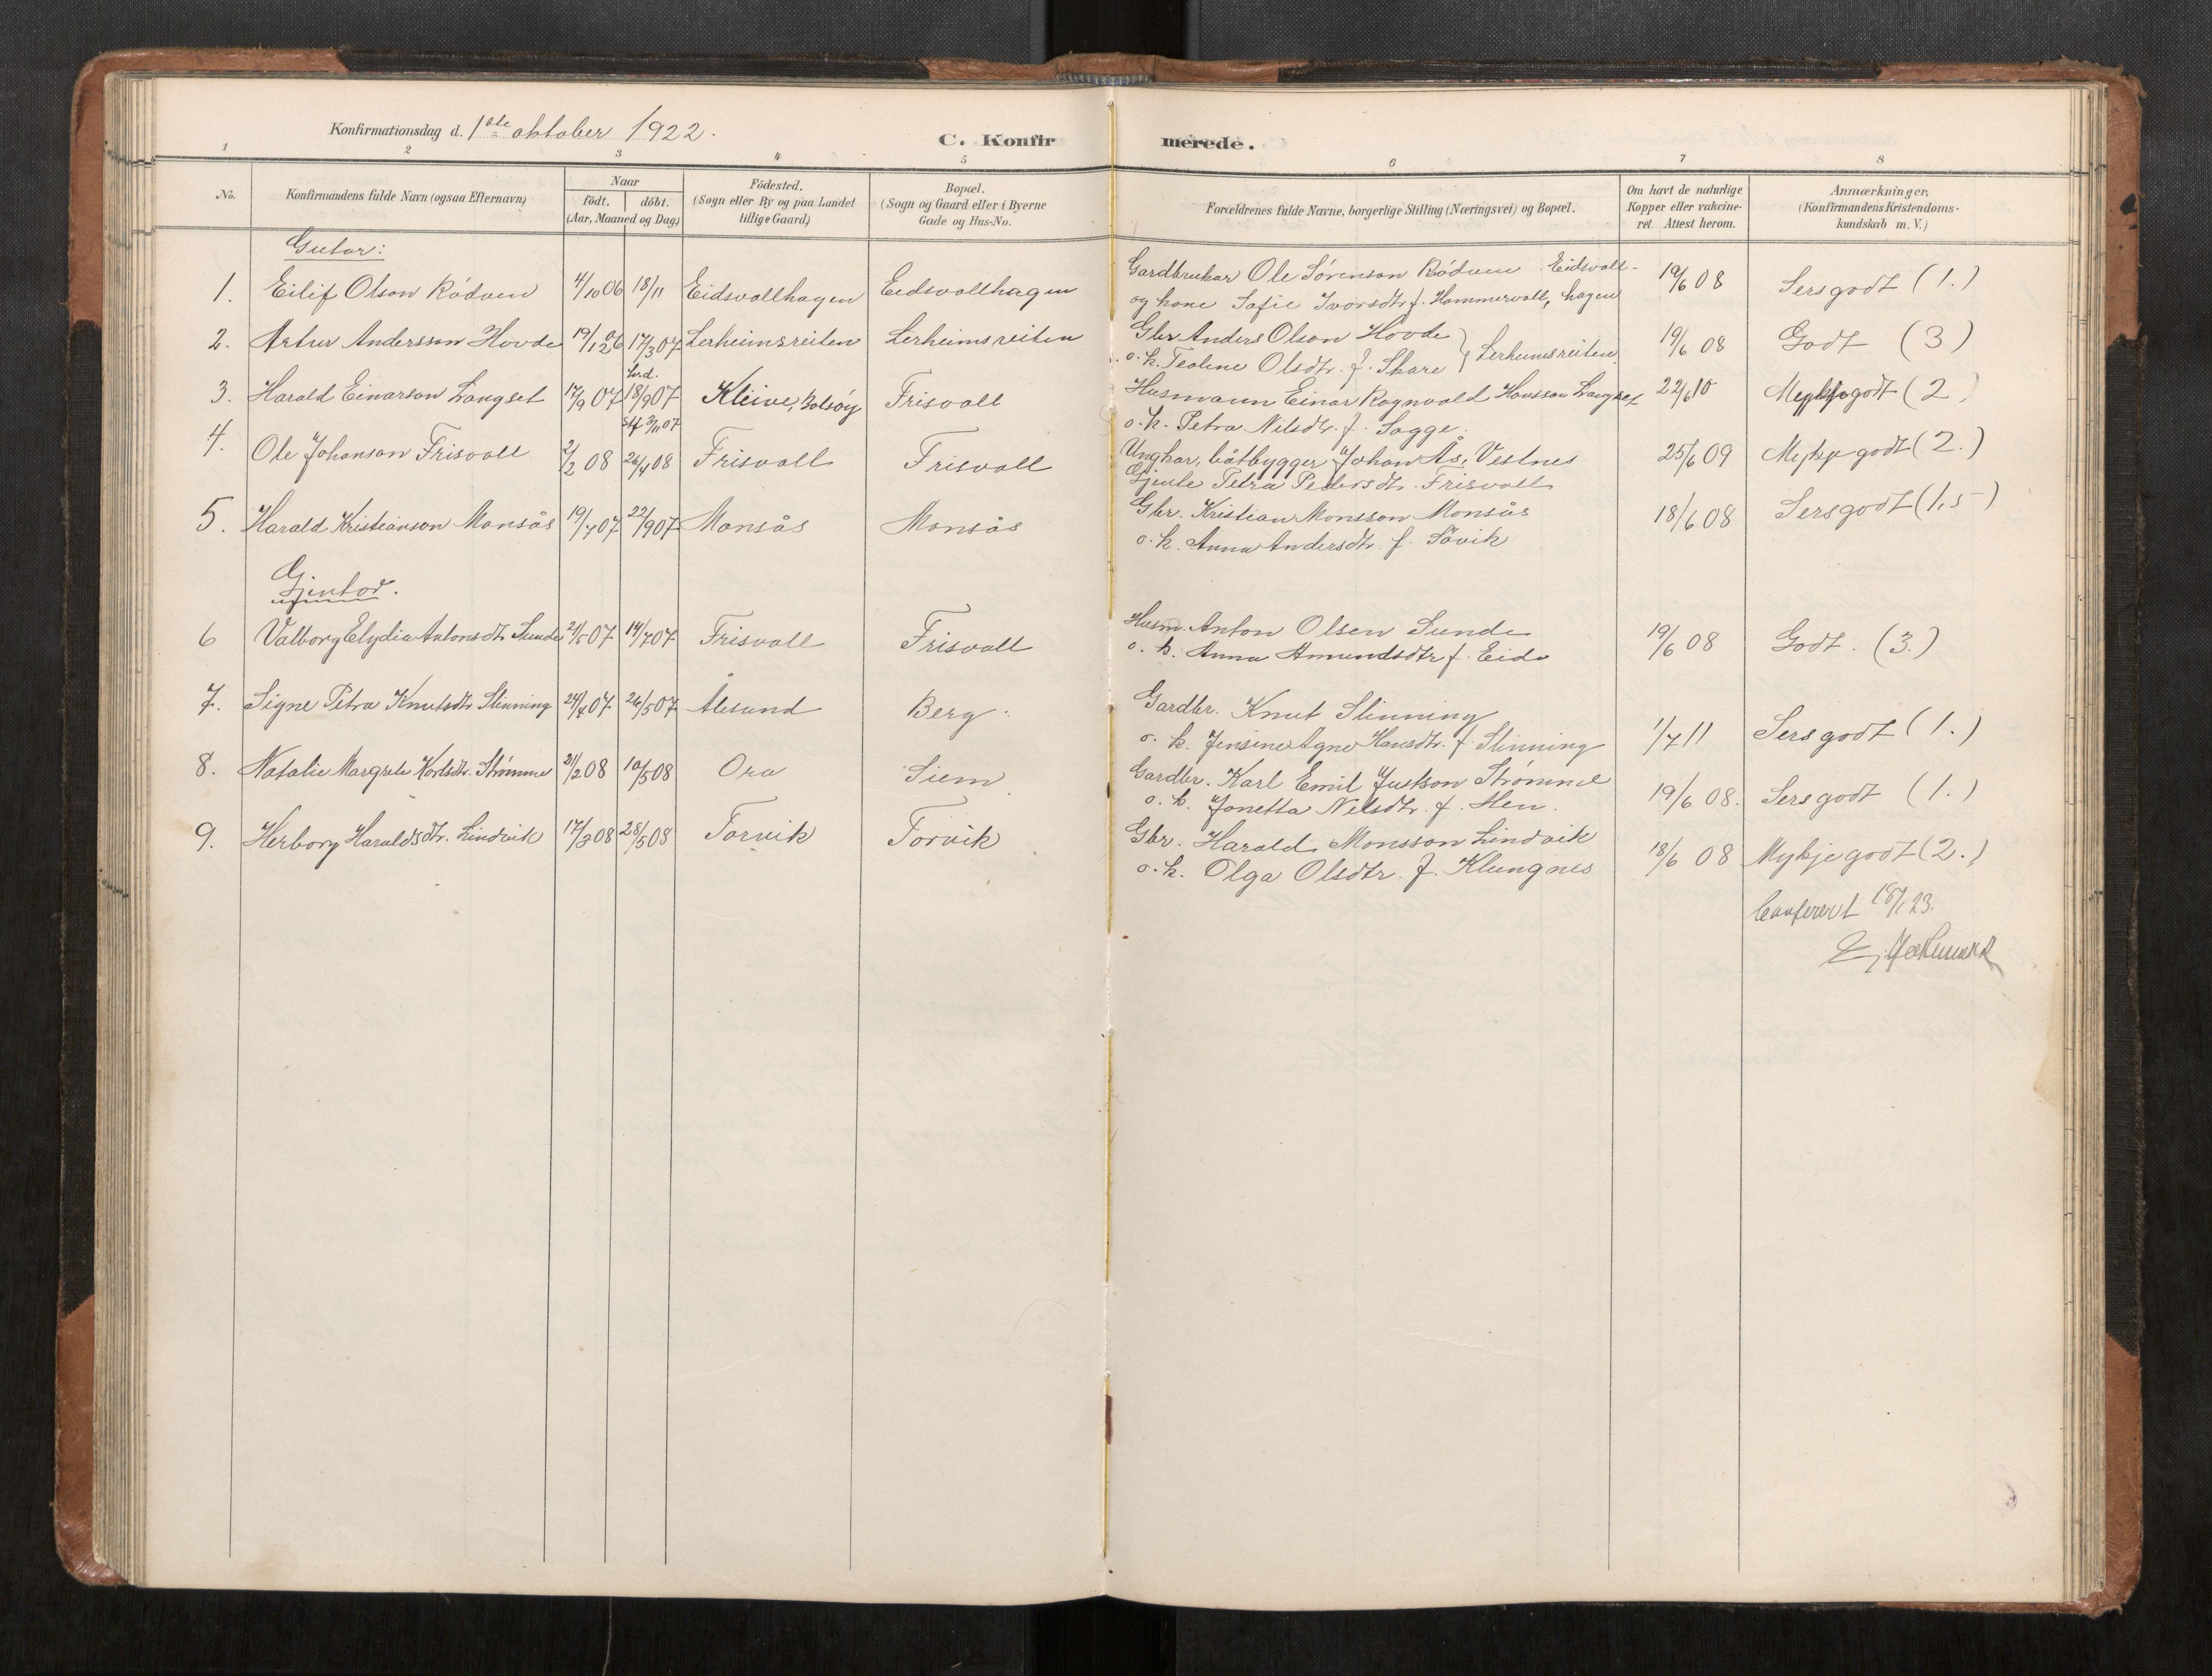 Konfirmationsdag d. 1ste oktober 1922.
C. Konfirmerede.
1 2 3 4 5 6 7 8
No. Konfirmandens fulde Navn (ogsaa Efternavn) Naar födt. döbt. (Aar, Maaned og Dag) Födested. (Sogn eller By og paa Landet tillige Gaard) Bopæl. (Sogn og Gaard eller i Byerne Gade og Hus-No. Forældrenes fulde Navne, borgerlige Stilling (Næringsvei) og Bopæl. Om havt de naturlige Kopper eller vakcineret. Attest herom. Anmærkninger, (Konfirmandens Kristendomskundskab m. V.)
Gutar:
1. Eilif Olson Rödven 4/10 06 18/11 Eidsvollhagen Eidsvollhagen Gardbrukar Ole Sörenson Rödven Eidsvoll-
og kone Sofie Ivorsdtr f. Hammervoll, hagen 19/6 08 Sers godt (1.)
2. Artur Andersson Hovde 19/12 06 17/3 07 Lerheimsreiten Lerheimsreiten Gbr Anders Olson Hovde
o. k. Teoline Olsdtr. f. Skare } Lerheimsreiten 19/6 08 Godt (3)
3. Harald Einarson Langset 17/9 07 hv.d. 18/9 07 st.f. 3/11 07 Kleive, Bolsöy Frisvoll Husmann Einar Ragnvald Hansson Langset
o. k. Petra Nilsdtr. f. Sagge. 22/6 10 Mykje godt (2)
4. Ole Johanson Frisvoll 2/2 08 26/4 08 Frisvoll Frisvoll Ungkar, båtbygger Johan Ås, Vestnes
Gjente Petra Pedersdtr. Frisvoll 25/6 09 Mykje godt (2.)
5. Harald Kristianson Monsås 19/7 07 22/9 07 Monsås Monsås Gbr. Kristian Monsson Monsås
o. k. Anna Andersdtr. f. Sövik 18/6 08 Sers godt (1,5)
Gjentor.
6 Valborg Elydia Antonsdtr Sunde 21/5 07 14/7 07 Frisvoll Frisvoll Husm. Anton Olsen Sunde
o. k. Anna Amundsdtr f. Eide 19/6 08 Godt. (3.)
7. Signe Petra Knutsdtr Slinning 24/4 07 26/5 07 Ålesund Berg. Gardbr. Knut Slinning
o. k. Jensine Agne Hansdtr. f. Slinning 1/7 11 Sers godt (1.)
8. Natalie Margrete Karlsdtr. Strömme 21/2 08 10/5 08 Ora Siem Gardbr. Karl Emil Justson Strömme
o. k. Jonetta Nilsdtr. f. Hen. 19/6 08. Sers godt (1.)
9. Herborg Haraldsdtr. Lindvik 17/3 08 28/5 08 Torvik Torvik Gbr. Harald Monsson Lindvik
o. k. Olga Olsdtr. f. Klungnes 18/6 08 Mykje godt (2.)
Conferert 18/1 23.